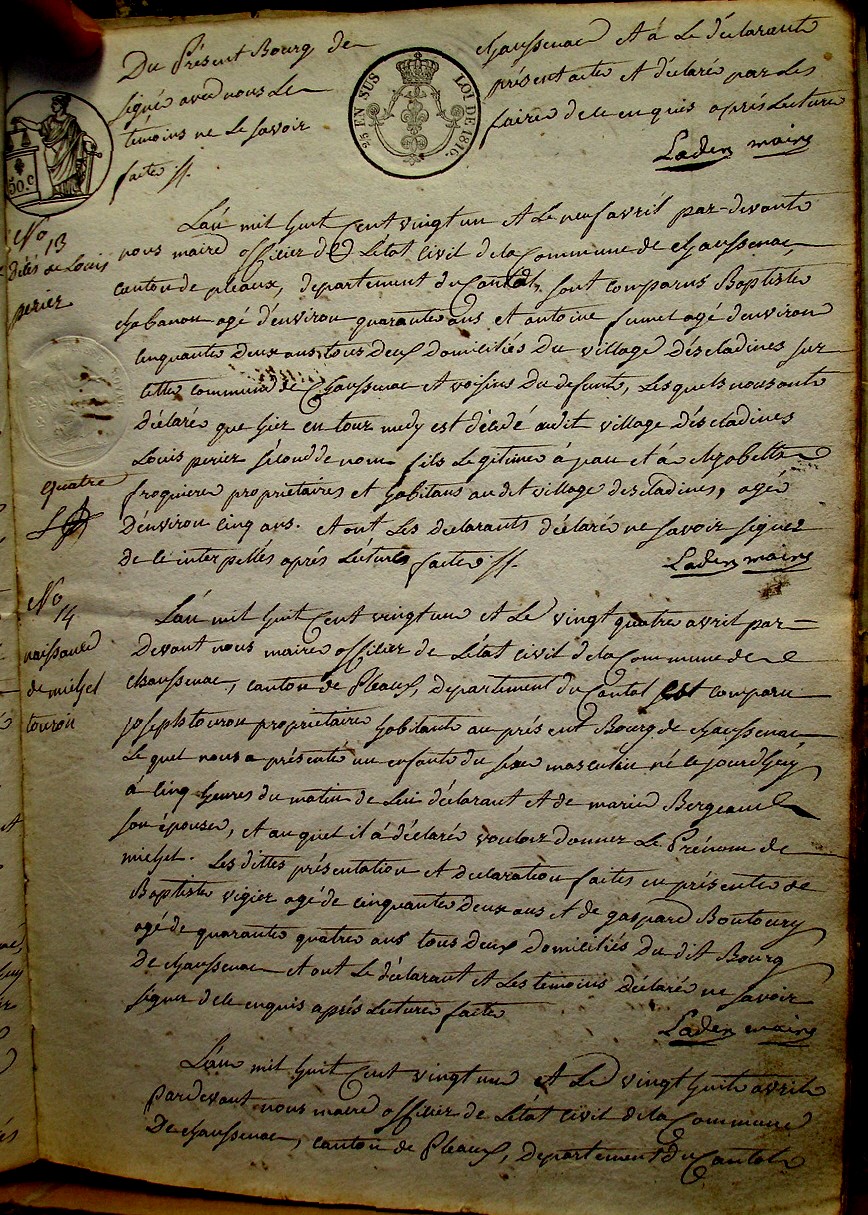 Du Présent Bourg de chaussenac et à Le déclarante
signé avec nous Le présent acte et déclaré par Les
témoins ne Le savoir faire de ce enquis après Lecture
faite //.
Laden maire
25 EN SUS LOI DE 1816.
50.C
No 13
décès de Louis
perier
L'an mil huit Cent vingt un et Le neuf avril par-devante
nous maire officier de L'état civil de la Commune de chaussenac,
canton de pleaux, departement du Cantal, sont comparus Baptiste
chabanon agé d'environ quarante ans et antoine fumel agé d'environ
cinquante deux ans, tous deux Domiciliés du village d'éscladines sur
cette commune de Chaussenac et voisins du defunte, Lesquels nous onte
déclaré que hier en tour medy est décédé audit village d'éscladines
Louis perier sécond de nom fils Legitime à jean et à
froquiere propriétaires et habitans audit village descladines, agé
D'environ cinq ans. et ont Les declarants déclaré ne savoir signer
de ce interpellés après Lecture faite //.
Laden maire
quatre
No 14
naissance
de michel
touron
L'an mil huit Cent vingt un et Le vingt quatre avril par-
Devant nous maire officier de L'état civil de la Commune de
chaussenac, canton de Pleaux, departement du Cantal est comparu
joseph touron propriétaire habitante au présent Bourg de chaussenac
Le quel nous a présenté un enfant du séxe masculin né ce jourd'huy
à cinq heures du matin de Lui déclarant et de marie Bergeaud
son épouse, et au quel il a déclaré vouloir donner Le Prénom de
michel. Les dittes présentation et declaration faites en présente de
Baptiste vigier agé de cinquante deux ans et de gaspard Boutoury
agé de quarante quatre ans tous deux domiciliés Du dit Bourg
De chaussenac et ont Le déclarant et Les temoins déclaré ne savoir
signer de ce enquis après Lecture faite
Laden maire
L'an mil huit Cent vingt un et Le vingt huit avril
Pardevant nous maire officier de L'état civil de la Commune
De chaussenac, canton de Pleaux, departement du Cantal